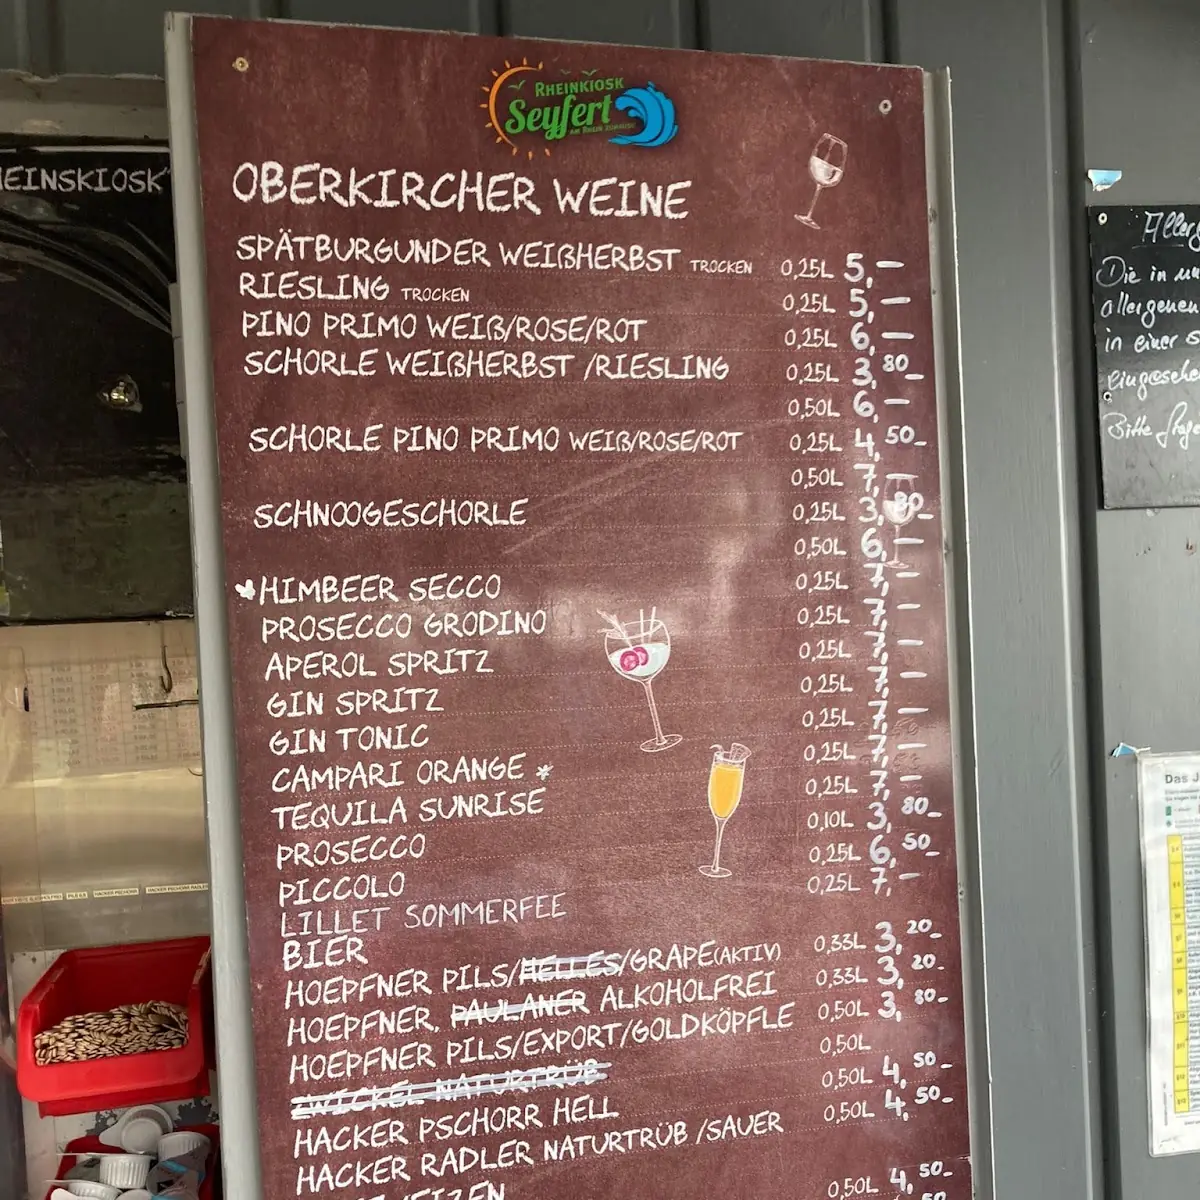 RHEINKIOSK
Seyfert
OBERKIRCHER WEINE
SPÄTBURGUNDER WEIßHERBST TROCKEN 0,25L 5,—
RIESLING TROCKEN 0,25L 5,—
PINO PRIMO WEIß/ROSE/ROT 0,25L 6,—
SCHORLE WEIßHERBST /RIESLING 0,25L 3,80-
0,50L 6,—
SCHORLE PINO PRIMO WEIß/ROSE/ROT 0,25L 4,50-
0,50L 7,—
SCHNOOGESCHORLE 0,25L 3,80-
0,50L 6,—
HIMBEER SECCO 0,25L 7,—
PROSECCO GRODINO 0,25L 7,—
APEROL SPRITZ 0,25L 7,—
GIN SPRITZ 0,25L 7,—
GIN TONIC 0,25L 7,—
CAMPARI ORANGE * 0,25L 7,—
TEQUILA SUNRISE 0,25L 7,—
PROSECCO 0,10L 3,80-
PICCOLO 0,25L 6,50-
LILLET SOMMERFEE 0,25L 7,—
BIER
HOEPFNER PILS/HELLES/GRAPE(AKTIV) 0,33L 3,20-
HOEPFNER, PAULANER ALKOHOLFREI 0,33L 3,20-
HOEPFNER PILS/EXPORT/GOLDKÖPFLE 0,50L 3,80-
ZWICKEL NATURTRÜB 0,50L
HACKER PSCHORR HELL 0,50L 4,50-
HACKER RADLER NATURTRÜB /SAUER 0,50L 4,50-
0,50L 4,50-
EINSKIOSK
Die in
allergenen
in einer
Bitte
Das